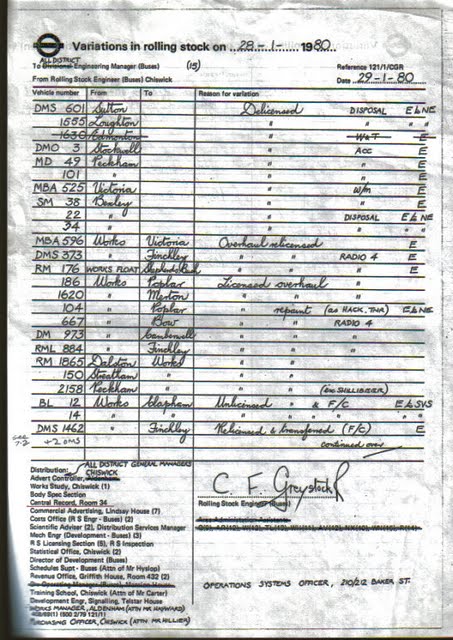 Variations in rolling stock on 28-1- 1980
ALL DISTRICT
To Divisional Engineering Manager (Buses) (15) Reference 121/1/CGR
From Rolling Stock Engineer (Buses) Chiswick Date 29-1-80
Vehicle number From To Reason for variation
DMS 601 Sutton Delicensed DISPOSAL E L NE
1555 Loughton " " " "
1630 Edmonton " W&T E
DMO 3 Stockwell " Acc E
MD 49 Peckham " " E
101 " " " E
MBA 525 Victoria " W/m E
SM 38 Bexley " " E
22 " " DISPOSAL E L NE
34 " " " " "
MBA 596 Works Victoria Overhaul relicensed E
DMS 373 " Finchley " " RADIO 4 E
RM 176 WORKS FLOAT Shepherds Bush " " E
186 Works Poplar Licensed overhaul
1620 " Merton " "
104 " Poplar " repaint (as HACK. TNR) E L NE
667 " Bow " " RADIO 4
DM 973 " Camberwell " "
RML 884 " Finchley " "
RM 1865 Dalston Works " "
150 Streatham " " "
2158 Peckham " " " (ex SHILLIBEER)
BL 12 Works Clapham Unlicensed " & F/C E L SVS
14 " " " " " " "
DMS 1462 " Finchley Relicensed & transferred (F/C) E
+2 DMS continued over
Distribution: ALL DISTRICT GENERAL MANAGERS
CHISWICK
Advert Controller, Aldenham
Works Study, Chiswick (1)
Body Spec Section
Central Record, Room 34
Commercial Advertising, Lindsay House (7)
Costs Office (R S Engr - Buses) (2)
Scientific Adviser (2), Distribution Services Manager
Mech Engr (Development - Buses) (3)
R S Licensing Section (5), R S Inspection
Statistical Office, Chiswick (2)
Director of Development (Buses)
Schedules Supt - Buses (Attn of Mr Hyslop)
Revenue Office, Griffith House, Room 432 (2)
Div Operating Manager (Buses), Mansion House
Training School, Chiswick (Attn of Mr Carter)
Development Engr, Signalling, Telstar House
WORKS MANAGER, ALDENHAM (ATTN MR HAYWARD)
PURCHASING OFFICER, CHISWICK (ATTN MR HILLIER)
C F Greystock
Rolling Stock Engineer (Buses)
Area Administration Assistants
OPERATIONS SYSTEMS OFFICER, 210/212 BAKER ST.